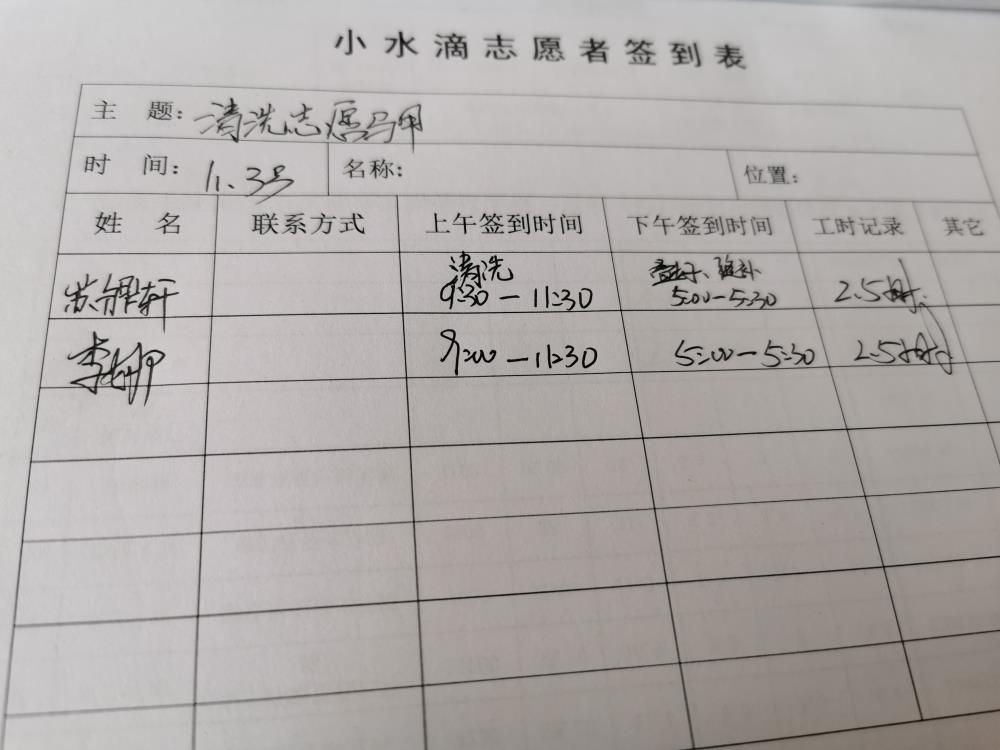 小水滴志愿者签到表
主 题: 清洗志愿马甲
时 间: 11.3号 名称: 位置:
姓 名 联系方式 上午签到时间 下午签到时间 工时记录 其它
清洗
9:30—11:30 5:00—5:30 2.5小时
李 9:00—11:30 5:00—5:30 2.5小时